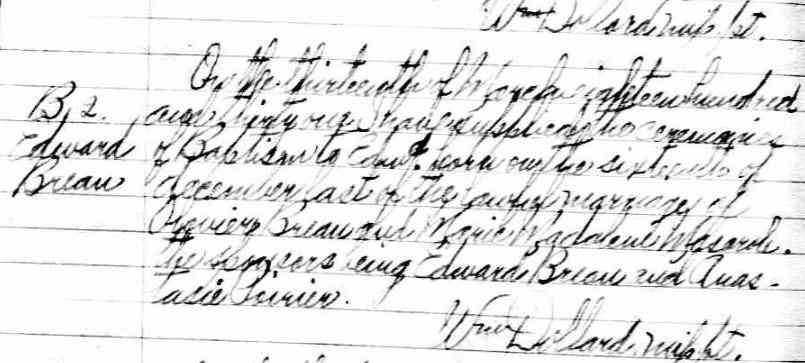 Wm Dollard mip pt.
On the thirteenth of March eighteen hundred
B, 2. and thirty one I have supplied the ceremonies
Edward of Baptism to Edwd. born on the sixteenth of
Breau December last of the lawful marriage of
Olivier Breau and Marie Madalene
The sponsors being Edward Breau and Anas-
tasie Poirier.
Wm Dollard mip pt.